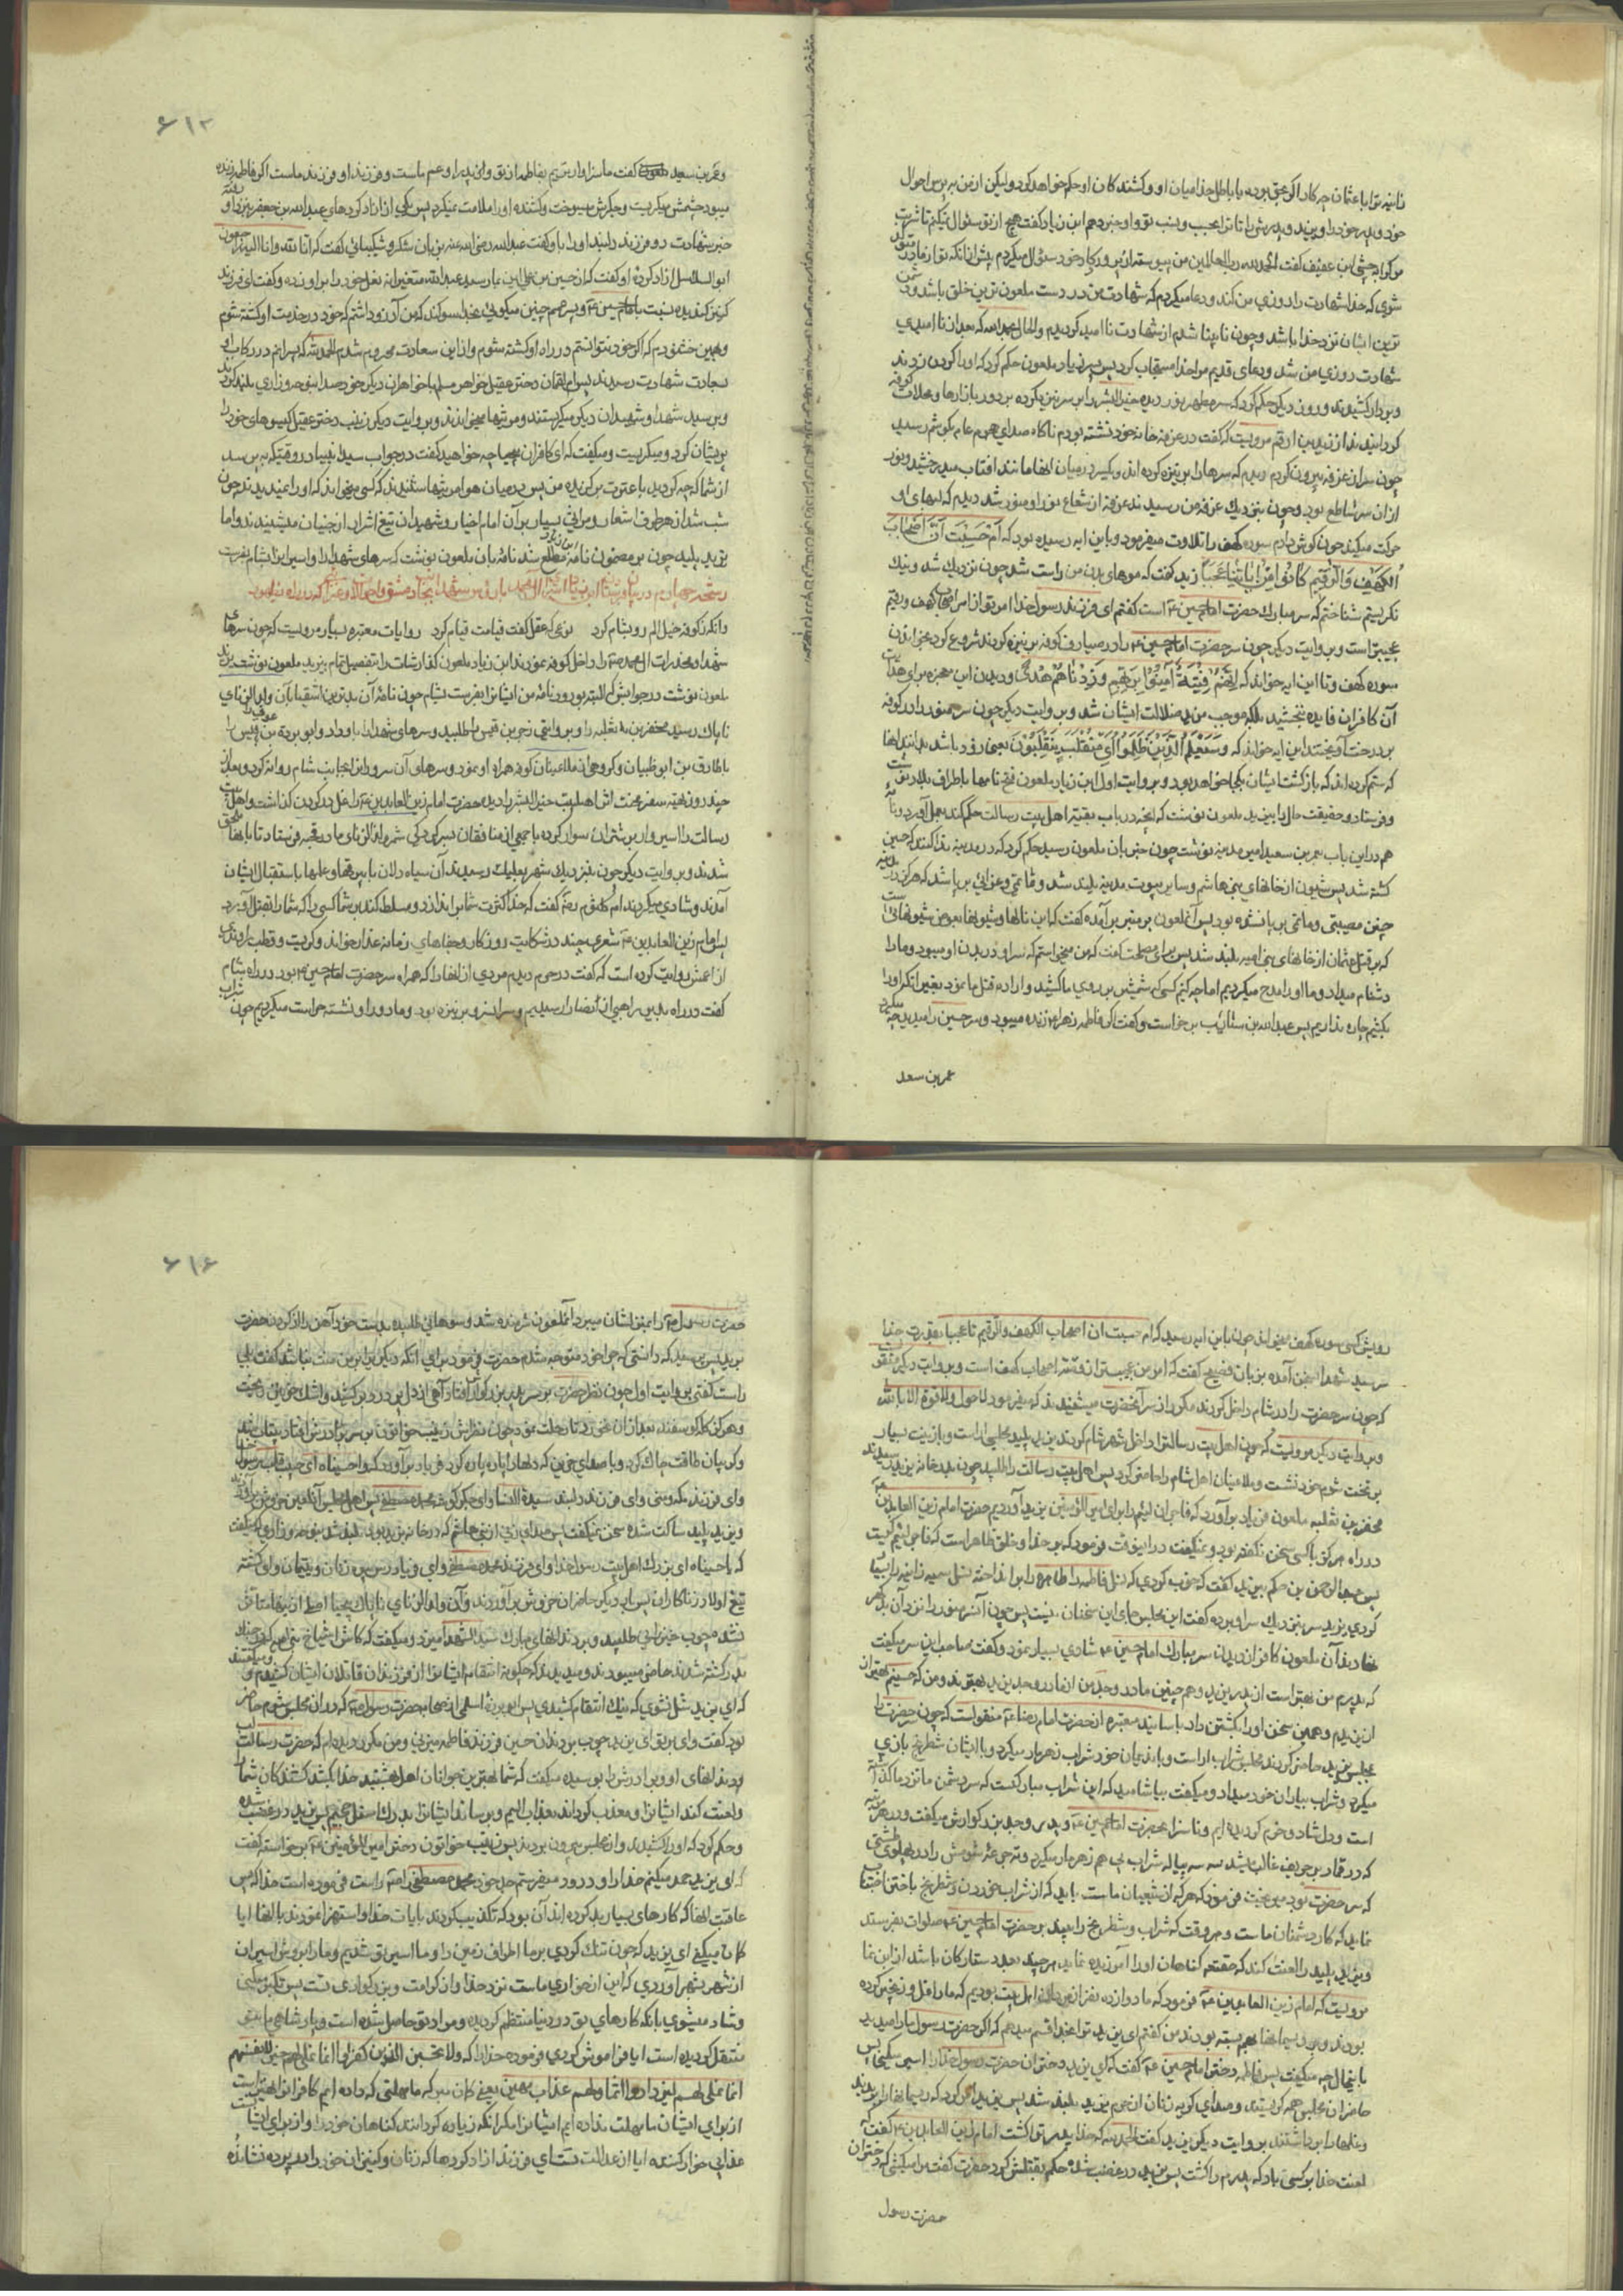 زانیه ترا با عثمان چه کار اگر بحق بوده یا بباطل خدا میان او و کشندکان او حکم خواهد کرد ولیکن از من بپرس احوال
خود و پدر خود را و یزید و پدرش را تا ترا بحسب و نسب تو و او خبر دهم ابن زیاد گفت هیچ از تو سئوال نمیکنم تا شربت
مرک را بچشی ابن عفیف گفت الحمد لله رب العالمین من پیوسته از پروردکار خود سئوال میکردم پیش از آنکه تو از مادر متولد
شوی که خدا شهادت را روزی من کند و دعا میکردم که شهادت من در دست ملعون ترین خلق باشد و دشمن
ترین ایشان نزد خدا باشد و چون نابینا شدم از شهادت ناامید کردیدم و الحال الحمد لله که بعد از ناامیدی
شهادت روزی من شد و دعای قدیم مرا خدا مستجاب کرد پس پسر زیاد ملعون حکم کرد که او را کردن زدند
و بر دار کشیدند و روز دیکر حکم کرد که سر مطهر نور دیده خیر البشر را بر سر نیزه کرده بر دور بازارها و محلات کوفه
کردانیدند از زید بن ارقم مرویست که گفت در غرفه خانه خود نشسته بودم ناکاه صدای هجوم عام بکوشم رسید
چون سر از غرفه بیرون کردم دیدم که سرها را بر نیزه کرده اند و یکسر در میان آنها مانند افتاب میدرخشید و نور
از ان سر ساطع بود و چون بنزدیک غرفه من رسیدند غرفه از شعاع نور او منور شد دیدم که لبهای او
حرکت میکند چون کوش دادم سوره کهف را تلاوت میفرمود و باین ایه رسیده بود که أَمْ حَسِبْتَ أَنَّ أَصْحَابَ
الْكَهْفِ وَالرَّقِيمِ كَانُوا مِنْ آيَاتِنَا عَجَباً زید گفت که موهای بدن من راست شد چون نزدیک شد و نیک
نکریستم شناختم که سر مبارک حضرت امام حسین ع است کفتم ای فرزند رسول خدا امر تو از امر اصحاب کهف و رقیم
عجیبتر است و بروایت دیکر چون سر حضرت امام حسین ع را در صیارف کوفه بر نیزه کردند شروع کرد بخواندن
سوره کهف و تا این ایه خواند که إِنَّهُمْ فِتْيَةٌ آمَنُوا بِرَبِّهِمْ وَزِدْنَاهُمْ هُدًى و دیدن این معجزه برای هدایت
آن کافران فایده نبخشید بلکه موجب مزید ضلالت ایشان شد و بروایت دیکر چون سر منور را در کوفه
بر درخت آویختند این ایه خواند که وَسَيَعْلَمُ الَّذِينَ ظَلَمُوا أَيَّ مُنْقَلَبٍ يَنْقَلِبُونَ یعنی زود باشد بدانند انها
که ستم کرده اند که بازکشت ایشان بکجا خواهد بود و بروایت اول ابن زیاد ملعون فتح نامها باطراف بلاد نوشت
و فرستاد و حقیقت حال را بیزید ملعون نوشت که انچه در باب بقیه اهل بیت رسالت حکم کند بعمل آورد و نامه
هم در این باب بعمر بن سعید امیر مدینه نوشت چون خبر بان ملعون رسید حکم کرد که در مدینه ندا کنند که حسین
کشته شد پس شیون از خانهای بنی هاشم و سایر بیوت مدینه بلند شد و ماتمی و عزائی بر پا شد که هرکز در مدینه
چنین مصیبتی و ماتمی بر پا نشده بود پس آن ملعون بر منبر بر آمده کفت که این نالها و شیونها بعوض شیونهائی است
که بر قتل عثمان از خانهای بنی امیه بلند شد پس برای مصلحت گفت که من نمیخواستم که سر او در بدن او میبود و ما را
دشنام میداد و ما او را مدح میکردیم اما چه کنیم کسی که شمشیر بر روی ما کشید و اراده قتل ما نمود بغیر انکه او را
بکشیم چاره نداریم پس عبدالله بن سایب برخاست و کفت اکر فاطمه زهرا ع زنده میبود و سر حسین را میدید چه میکرد
عمر بن سعد
۶۱۳
و عمر بن سعید ملعون کفت ما سزاوارتریم بفاطمه از تو واو پدر او عم ماست و فرزند او فرزند ماست اکر فاطمه زنده
میبود چشمش میکریست و جکرش میسوخت و کشنده او را ملامت نمیکرد پس یکی از ازاد کردهای عبدالله بن جعفر بنزد او رفته
خبر شهادت دو فرزند دلبند او را باو کفت عبدالله رضی الله عنه بزبان شکر و شکیبائی کفت که انا لله و انا الیه راجعون
ابو السلاسل ازاد کرده او کفت که از حسین بن علی این بما رسید عبدالله متغیرانه نعل خود را بر او زده و کفت ای فرزند
کنیز کندیده نسبت بامام حسین ع و پسرعم چنین میکوئی بخدا سوکند که من آرزو داشتم که خود در خدمت او کشته شوم
و همین خشنودم که اکر خود نتوانستم در راه او کشته شوم و از این سعادت محروم شدم الحمد لله که پسرانم در رکاب او
بسعادت شهادت رسیدند پس ام لقمان دختر عقیل خواهر مسلم با خواهران دیکر خود صدا بنوحه و زاری بلند کردند
و بر سید شهدا و شهیدان دیکر میکریستند و مرثیها میخواندند و بروایت دیکر زینب دختر عقیل کیسوهای خود را
پریشان کرد و میکریست و میکفت که ای کافران بیحیا چه خواهید کفت در جواب سید انبیا در وقتیکه بپرسد
از شما که چه کردید با عترت برکزیده من پس در میان هوا مرثیها شنیدند که کسی میخواند که او را نمیدیدند چون
شب شد از هر طرف اشعار و مراثی بسیار بر آن امام اخیار و شهیدان تیغ اشرار از جنیان میشنیدند و اما
یزید پلید چون بر مضمون نامه ابن زیاد مطلع شد نامه بان ملعون نوشت که سرهای شهدا را و اسیران را بشام بفرست
وانکه ز کوفه خیل الم رو بشام کرد  نوعی که عقل کفت قیامت قیام کرد  روایات معتبره بسیار مرویست که چون سرهای
شهدا و مخدرات ال محمد ص را داخل کوفه نمودند ابن زیاد ملعون کذارشات را بتفصیل تمام بیزید ملعون نوشت یزید
ملعون نوشت در جوابش که البته بزودی نامه من ایشان را بفرست بشام چون نامه آن بدترین اشقیا بآن ولد الزنای
ناپاک رسید مخفر بن ثعلبه را و بروایتی زحر بن قیس را طلبید و سرهای شهدا را باو داد و ابو بردة بن عوف را
با طارق بن ابو ظبیان و کروهی از ملاعینان کوفه همراه او نمود و سرهای آن سروران را بجانب شام روانه کرد و بعد از
چند روز تهیه سفر محنت اثر اهلبیت خیر البشر را دیده حضرت امام زین العابدین ع را غل در کردن کذاشت و اهل بیت
رسالت را اسیروار بر شتران سوار کرده با جمعی از منافقان بسرکردکی شمر ولد الزنای مادر قحبه فرستاد تا بآنها ملحق
شدند و بروایت دیکر چون بنزدیک شهر بعلبک رسیدند آن سیاه دلان با بیرقها و علمها باستقبال ایشان
آمدند و شادی میکردند ام کلثوم رضه گفت که خدا کثرت شما را براندازد و مسلط کند بر شما کسی را که شما را بقتل آورد
پس امام زین العابدین ع شعری چند در شکایت روزکار و جفاهای زمانه غدار خواند و کریست و قطب راوندی
از اعمش روایت کرده است که گفت در حرم دیدم مردی از انها را که همراه سر حضرت امام حسین ع بود در راه شام
گفت در راه بدیر راهبی از نصارا رسیدیم و سر انسرور بر نیزه بود و ما دور او نشسته حراست میکردیم چون شراب
رویش کسی سوره کهف میخواند چون باین ایه رسید که ام حسبت ان اصحاب الکهف والرقیم تا عجبا بقدرت خدا
سر سید شهدا بسخن آمده بزبان فصیح کفت که امر من عجیبتر از قصه اصحاب کهف است و بروایت دیکر منقولست
که چون سر حضرت را در شام داخل کردند مکرر از سر آنحضرت میشنیدند که میفرمود لا حول ولا قوة الا بالله
و بروایت دیکر مرویست که چون اهل بیت رسالت را داخل شهر شام کردند یزید پلید مجلسی اراست و با زینت بسیار
بر تخت شوم خود نشست و ملاعینان اهل شام را حاضر کرد پس اهل بیت رسالت را طلبید چون بدر خانه یزید رسیدند
مخفر بن ثعلبه ملعون فریاد برآورد که فاجران لئیم را برای امیر المؤمنین یزید آوردیم حضرت امام زین العابدین ع
در راه هرکز با کسی سخن نکفته بود و نمیکفت در این وقت فرمود که بر خدا و خلق ظاهر است که فاجر لئیم کیست
پس عبدالرحمن بن حکم بیزید کفت که خوب کردی که نسل فاطمه را برانداختی و نسل سمیه زانیه را بسیار
کردی یزید سر بنزدیک سر او برده کفت این مجلس جای این سخنان نیست پس چون آن سر منور را نزد آن بدکهر
نهادند آن ملعون کافر از دیدن سر مبارک امام حسین ع شادی بسیار نمود و کفت صاحب این سر میکفت
که پدرم من بهتر است از پدر یزید و هم چنین مادر و جد من از مادر و جد یزید بهترند و من که حسینم بهتر از
از یزیدم و همین سخن او را بکشتن داد باسانید معتبره از حضرت امام رضا ع منقولست که چون سر حضرت را
بمجلس یزید حاضر کردند مجلس شراب اراست و با ندیمان خود شراب زهرمار میکرد و با ایشان شطرنج بازی
میکرد و شراب بیاران خود میداد و میکفت بیاشامید که این شراب مبارکست که سر دشمن ما نزد ما کذاشته
است و دل شاد و خرم کردیده ایم و ناسزا بحضرت امام حسین ع و پدر و جد بزرکوارش میکفت و در هر مرتبه
که در قمار بر حریف غالب میشد سه پیاله شراب پی هم زهرمار میکرد و ته جرعه شومش را در پهلوی طشتی
که سر حضرت بود میریخت فرمود که هر که از شیعیان ماست باید که از شراب خوردن و شطرنج باختن اجتناب
نماید که کار دشمنان ماست و هر وقت که شراب و شطرنج را ببیند بر حضرت امام حسین ع صلوات بفرستد
و یزید پلید را لعنت کند که حقتعه کناهان او را آمرزیده نماید هر چند بعدد ستارکان باشد از این نما
مرویست که امام زین العابدین ع فرمود که ما دوازده نفر از اهل بیت بودیم که ما را غل و زنجیر کرده
بودند و بریسمانها بهم بسته بودند من کفتم ای یزید ترا بخدا قسم میدهم که اکر حضرت رسول ما را میدید
باینحال چه میکفت پس فاطمه دختر امام حسین ع کفت که ای یزید دختران حضرت رسول خدا را اسیر میکنی پس
حاضران مجلس همه کریستند و صدای کریه زنان از حرم یزید بلند شد پس یزید امر کرد که ریسمانها را بریدند
و غلها را برداشتند بروایت دیکر یزید کفت الحمد لله که خدا پدر ترا کشت امام زین العابدین ع کفت که
لعنت خدا بر کسی باد که پدرم را کشت پس یزید در غضب شده حکم بقتلش کرد حضرت کفت مرا میکشی که دختران
حضرت رسول
۶۱۴
حضرت رسول ص را بمنزلشان میبرد آنملعون شرمنده شد و سوهانی طلبیده بدست خود آهن را از کردن حضرت
برید پس پرسید که دانستی که چرا خود متوجه شدم حضرت فرمود برای آنکه دیکری را بر من منت نباشد کفت بلی
راست کفتی بروایت اول چون نظر حضرت بر سر پدر بزرکوارش افتاد آهی از دل پر درد برکشید و اشک خونین ریخت
و هرکز کله کوسفند بعد از ان نخورد تا رحلت نمود چون نظرش زینب خواتون بر سر برادرش افتاد بیتاب شد
و کریبان طاقت چاک کرد و با صدای حزین که دلها را پاره پاره کرد فریاد بر آورد که وا حسیناه ای حبیب قلب رسول خدا
و ای فرزند مکه و منی و ای فرزند دلبند سیدة النسا و ای جکرکوشه محمد مصطفی پس اهل مجلس آن لعین خروش بر آوردند
و یزید پلید ساکت شده سخن نمیکفت پس صدای زنی از بنی هاشم که در خانه یزید بود بلند شد بنوحه و زاری و میکفت
که یا حسیناه ای بزرک اهل بیت رسول خدا و ای فرزند محمد مصطفی و ای فریادرس بیوه زنان و یتیمان و ای کشته
تیغ اولاد زناکاران پس بار دیکر حاضران خروش بر آوردند و آن ولد الزنای ناپاک بیحیا اصلا از اینها متاثر
نشده چوب خیزرانی طلبید و بر دندانهای مبارک سید الشهدا میزد و میکفت که کاش اشیاخ بنی امیه که در جنک
بدر کشته شدند حاضر میبودند و میدیدند که چکونه انتقام ایشان را از فرزندان قاتلان ایشان کشیدم و میکفتند
که ای یزید شل نشوی که نیک انتقام کشیدی پس ابو برزه اسلمی از صحابه حضرت رسول ص که در ان مجلس شوم حاضر
بود کفت وای بر تو ای یزید چوب بر دندان حسین فرزند فاطمه میزنی و من مکرر دیدم که حضرت رسالت
دندانهای او و برادرش را بوسیده میکفت که شما بهترین جوانان اهل بهشتید خدا بکشد کشندکان شما را
و لعنت کند ایشان را و معذب کرداند بعذاب الیم و برساند ایشان را بدرک اسفل جحیم پس یزید در غضب شده
و حکم کرد که او را کشیدند و از مجلس بیرون بردند پس زینب خواتون دختر امیر المؤمنین ع برخاسته کفت
که ای یزید حمد میکنم خدا را و درود میفرستم جد خود محمد مصطفی را ص راست فرموده است خدا که پس
عاقبت انها که کارهای بسیار بد کرده اند آن بود که تکذیب کردند بایات خدا و استهزا نمودند بانها ایا
کمان میکنی ای یزید که چون تنک کردی بر ما اطراف زمین را و ما اسیر تو شدیم و ما را بروش اسیران
از شهر بشهر آوردی که این از خواری ماست نزد خدا و از کرامت و بزرکواری تست پس تکبر میکنی
و شاد میشوی بانکه کارهای تو در دنیا منتظم کردیده و مراد تو حاصل شده است و پادشاهی ما بتو
منتقل کردیده است ایا فراموش کردی فرموده خدا را که ولا تحسبن الذین کفروا انما نملی لهم خیر لانفسهم
انما نملی لهم لیزدادوا اثما ولهم عذاب مهین یعنی کمان مبر که ما مهلتی که داده ایم کافران را بهتر است
از برای ایشان ما مهلت نداده ایم ایشان را مکر انکه زیاده کردانند کناهان خود را و از برای ایشانست
عذابی خوار کننده ایا از عدالت تست ای فرزند ازاد کردها که زنان و کنیزان خود را در پرده نشانده